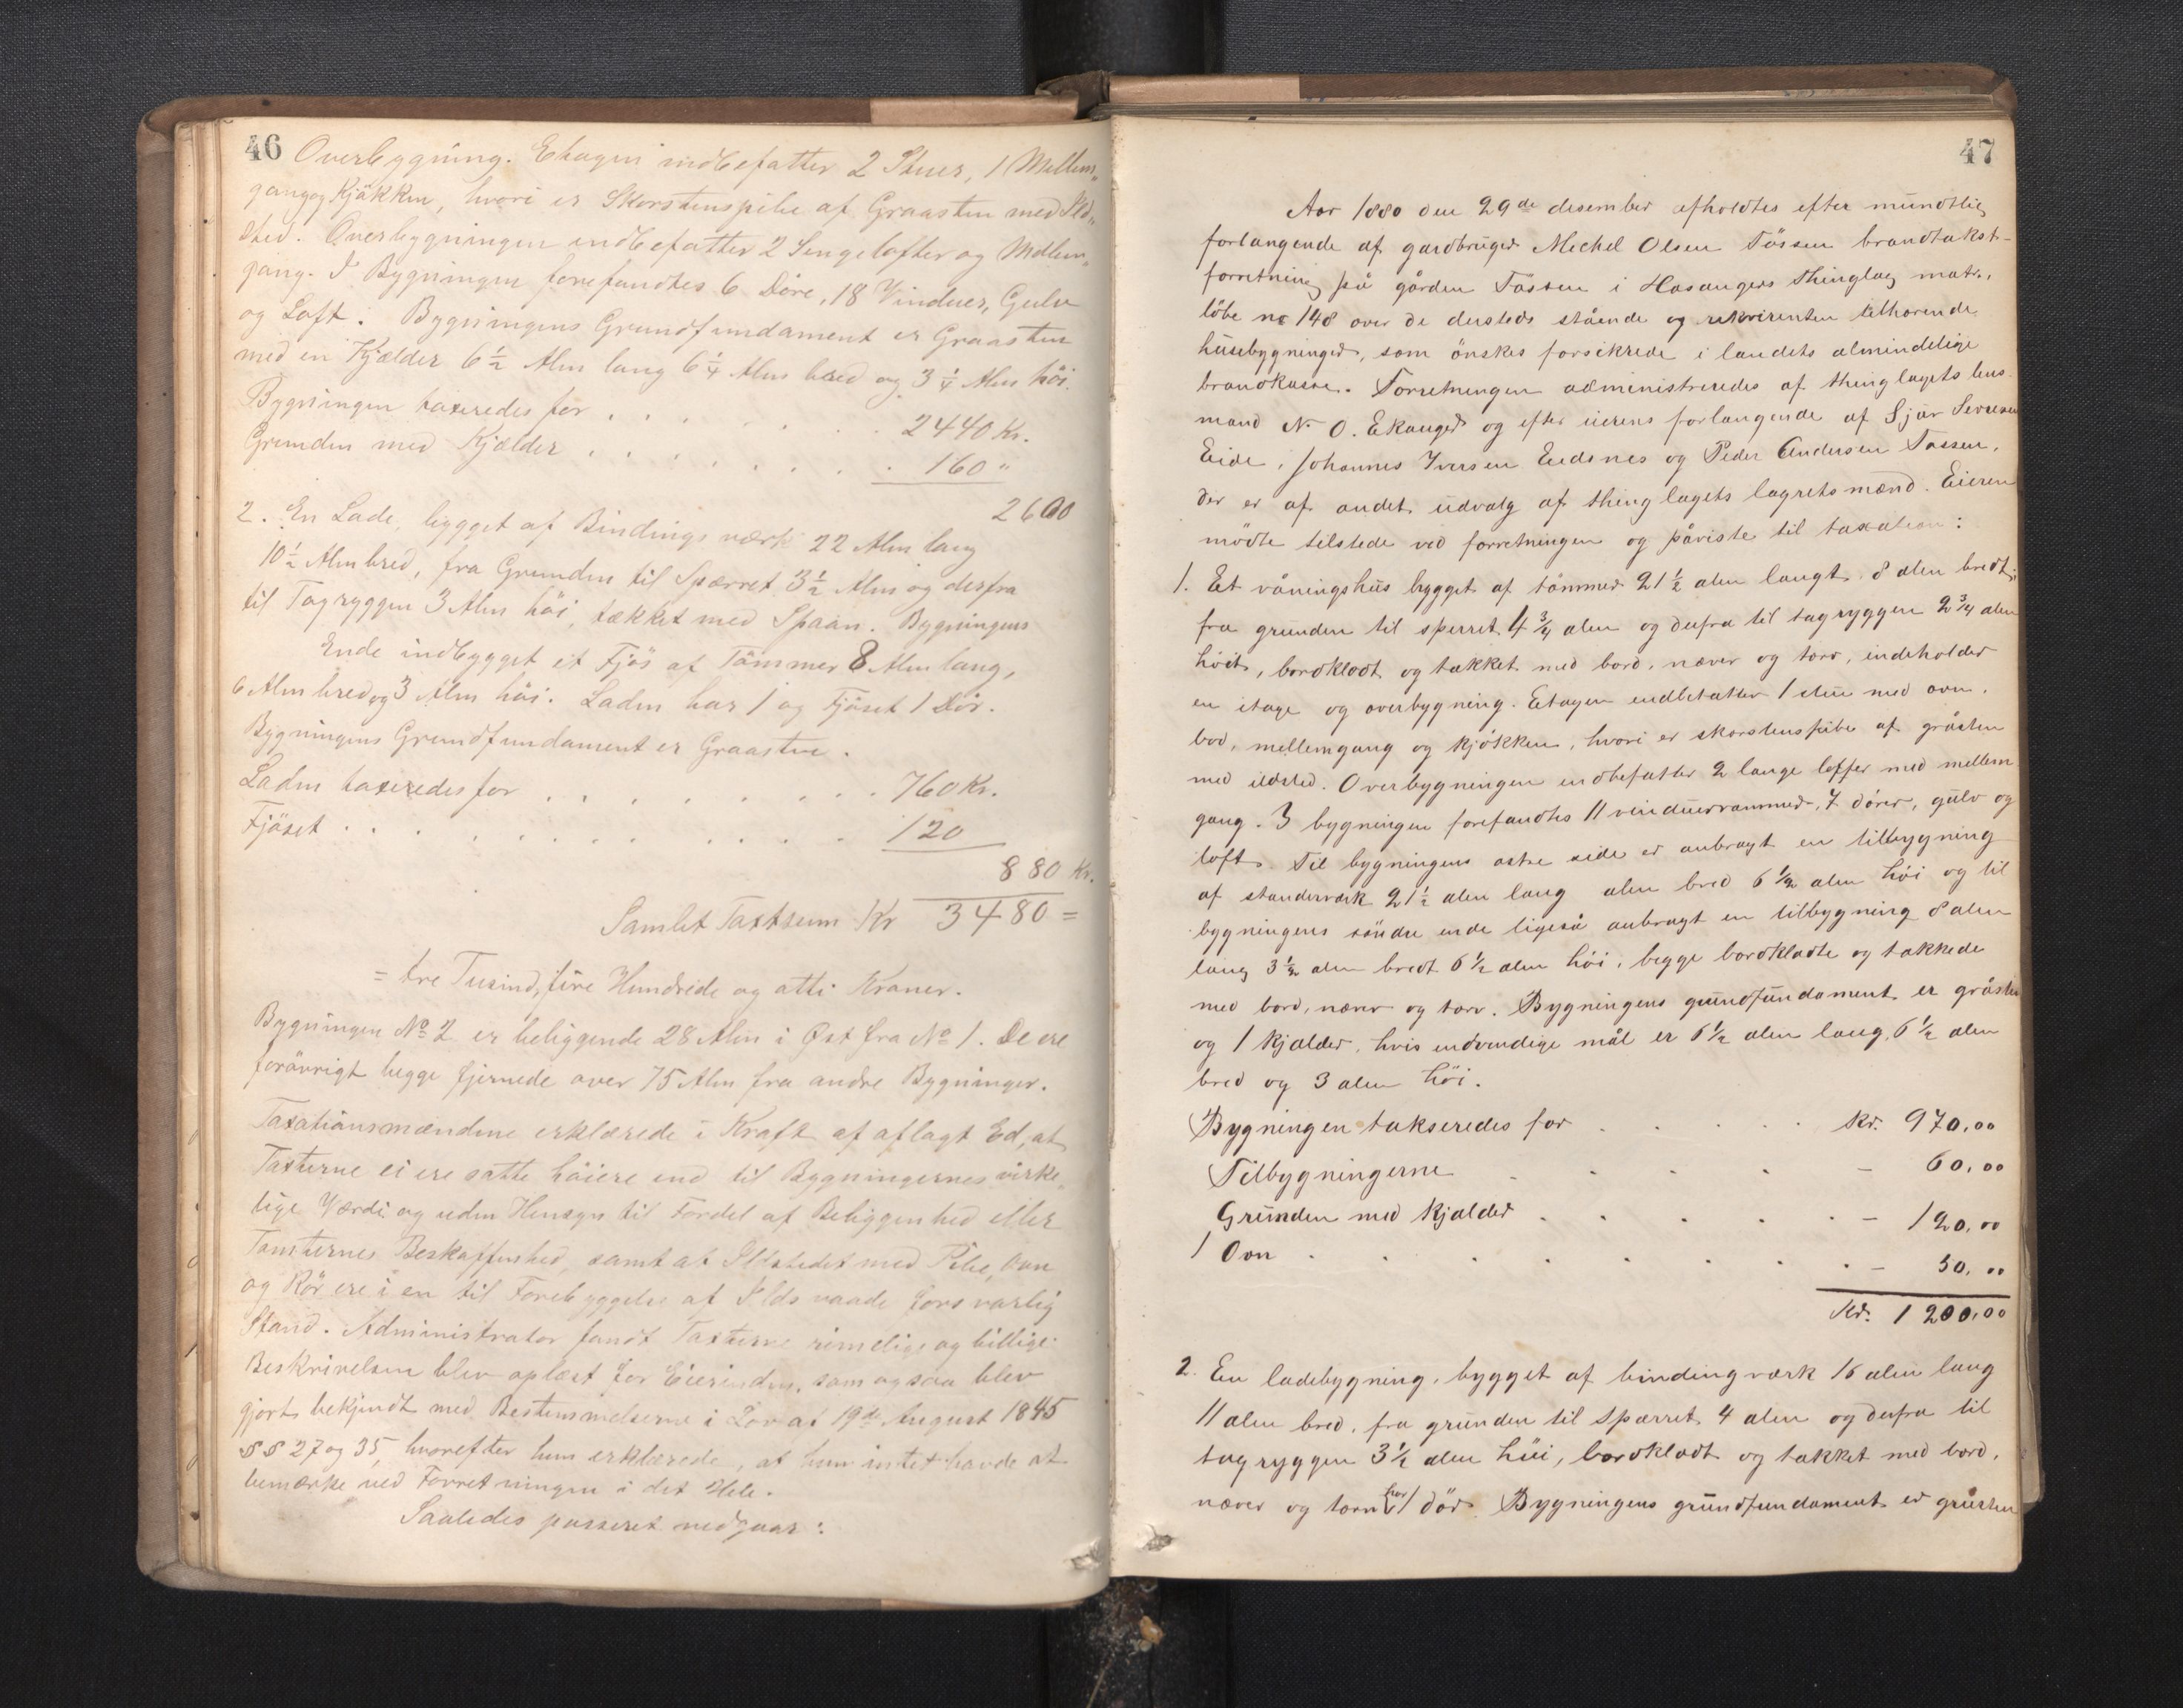 46 Overbygning. Etagen indbefatter 2 Stuer, 1 Mellem„
gang og Kjökken, hvori er Skorstenspibe af Graasten med Ild„
sted. Overbygningen indbefatter 2 Sengelofter og Mellem„
gang. I Bygningen forefandtes 6 Döre, 18 Vinduer, Gulv
og Loft. Bygningens Grundfundament er Graasten
med en Kjælder 6½ Alen lang 6¼ Alen bred og 3¼ Alen höi.
Bygningen taxeredes for . . . . . . 2440 Kr.
Grunden med Kjælder . . . . . . . 160 "
2600
2. En Lade, bygget af Bindingsværk 22 Alen lang
10½ Alen bred, fra Grunden til Spærret 3½ Alen og derfra
til Tagryggen 3 Alen höi, tækket med Spaan. Bygningens
Ende indbygget et Fjös af Tömmer 8 Alen lang,
6 Alen bred og 3 Alen höi. Laden har 1 og Fjöset 1 Dör.
Bygningens Grundfundament er Graasten.
Laden taxeredes for . . . . . . . . 760 Kr.
Fjöset . . . . . . . . . . . 120
880 Kr.
Samlet Taxtsum Kr 3480 =
= tre Tusind, fire Hundrede og otti Kroner.
Bygningen No 2 er beliggende 28 Alen i Øst fra No 1. De ere
forövrigt begge fjernede over 75 Alen fra andre Bygninger.
Taxationsmændene erklærede i Kraft af aflagt Ed, at
Taxterne ei ere satte höiere end til Bygningernes virke„
lige Værdi og uden Hensyn til Fordel af Beliggenhed eller
Tomternes Beskaffenhed, samt at Ildstedet med Pibe, Ovn
og Rör ere i en til Forebyggelse af Ildsvaade forsvarlig
Stand. Administrator fandt Taxterne rimelige og billige.
Beskrivelsen blev oplæst for Eierinden, som ogsaa blev
gjort bekjendt med Bestemmelserne i Lov af 19de August 1845
§§ 27 og 35, hvorefter hun erklærede, at hun intet havde at
bemærke ved Forretningen i det Hele.
Saaledes passeret vedgaar:
47
Aar 1880 den 29de desember afholdtes efter mundtlig
forlangende af gardbruger Mechel Olsen Tössen brandtakst-
forretning på gården Tössen i Hosangers thinglag matr.
löbe no 148 over de dersteds stående og rekvirenten tilhorende
husebygninger, som önskes forsikrede i landets almindelige
brandkasse. Forretningen administreredes af thinglagets lens-
mand N. O. Ekanger og efter eierens forlangende af Sjur
Eide, Johannes Iversen Eidsnes og Peder Andersen Tossen,
der er af andet udvalg af thinglagets lagretsmænd. Eieren
mödte tilstede ved forretningen og påviste til taxation:
1. Et våningshus bygget af tömmer 21½ alen langt 8 alen bredt,
fra grunden til sperret 4¾ alen og derfra til tagryggen 2¾ alen
höit, bordklædt og tækket med bord, næver og torv, indeholder
en etage og overbygning. Etagen indbefatter 1 stue med ovn,
bod, mellemgang og kjökken, hvori er skorstenspibe af gråsten
med ildsted. Overbygningen indbefatter 2 lange lofter med mellem
gang. I bygningen forefandtes 11 vinduerrammer, 7 dörer, gulv og
loft. Til bygningens ostre side er anbragt en tilbygning
af standerværk 21½ alen lang alen bred 6½ alen höi og til
bygningens söndre ende ligeså anbragt en tilbygning 8 alen
lang 3½ alen bredt 6½ alen höi, begge bordklædte og tækkede
med bord, næver og torv. Bygningens grundfundament er gråsten
og 1 kjælder, hvis indvendige mål er 6½ alen lang, 6½ alen
bred og 3 alen höi.
Bygningen takseredes for . . . . . Kr. 970,00
Tilbygningerne . . . . - 60,00
Grunden med kjælder . . . . . . - 120,00
1 Ovn . . . . . . . . - 50,00
Kr. 1200,00
2. En ladebygning, bygget af bindingværk 16 alen lang
11 alen bred, fra grunden til spærret 4 alen og derfra til
tagryggen 3½ alen höi, bordklædt og tækket med bord,
næver og torv har 1 dör. Bygningens grundfundament er gråsten